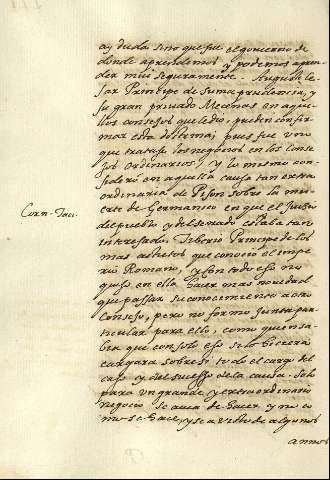 ay duda sino que fue el govierno de
donde aprendemos y podemos apren
der mui seguramente. Augusto Ce
sar Principe de suma prudencia, y
su gran privado Mecenas en aque
llos consejos que le dio, pueden confir
mar esta dotrina; pues fue uno
que tratase los negocios en los Conse
jos Ordinarios. Y lo mismo con
sideró en aquella causa tan extra
ordinaria de Pison sobre la mu
erte de Germanico en que el Juizio
del pueblo y del senado estava tan
Corn. Taci.
interesado. Tiberio Principe de los
mas astutos que conocio el impe
rio Romano, y con todo eso no
quiso en ella hacer mas novedad
que passar su conocimiento a otro
Consejo, pero no formo Junta par
ticular para ello, como quien sa
bia que con solo eso se lo hiciera
cargara sobre si todo el cargo del
caso y del sucesso de la causa. Solo
para un grande, y extraordinario
negocio se avia de hacer y no co
mo se hace, y se a visto de algunos
annos